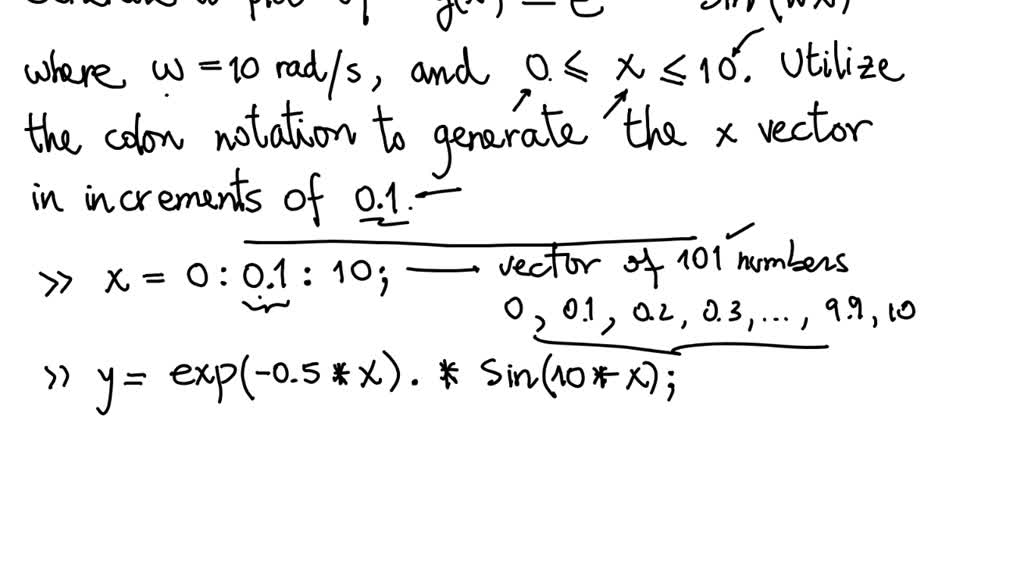 plot of y(x) = e sin(wx)
where w = 10 rad/s, and 0 ≤ x ≤ 10. Utilize
the colon notation to generate the x vector
in increments of 0.1.
>> x = 0 : 0.1 : 10; vector of 101 numbers
0, 0.1, 0.2, 0.3, ..., 9.9, 10
>> y = exp(-0.5 * x) . * Sin(10 * x);